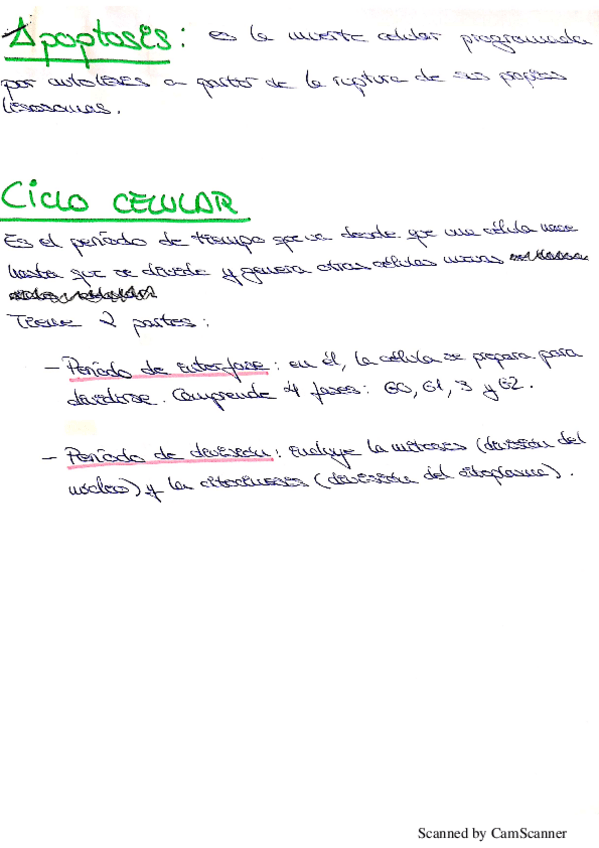 Apoptosis: es la muerte celular programada
por autolisis a partir de la ruptura de sus propios
lisosomas.
CICLO CELULAR
Es el período de tiempo que va desde que una célula nace
hasta que se divide y genera otras células nuevas
Tiene 2 partes:
- Período de interfase: en él, la célula se prepara para
dividirse. Comprende 4 fases: G0, G1, S y G2.
- Período de división: incluye la mitosis (división del
núcleo) y la citocinesis (división del citoplasma).
Scanned by CamScanner